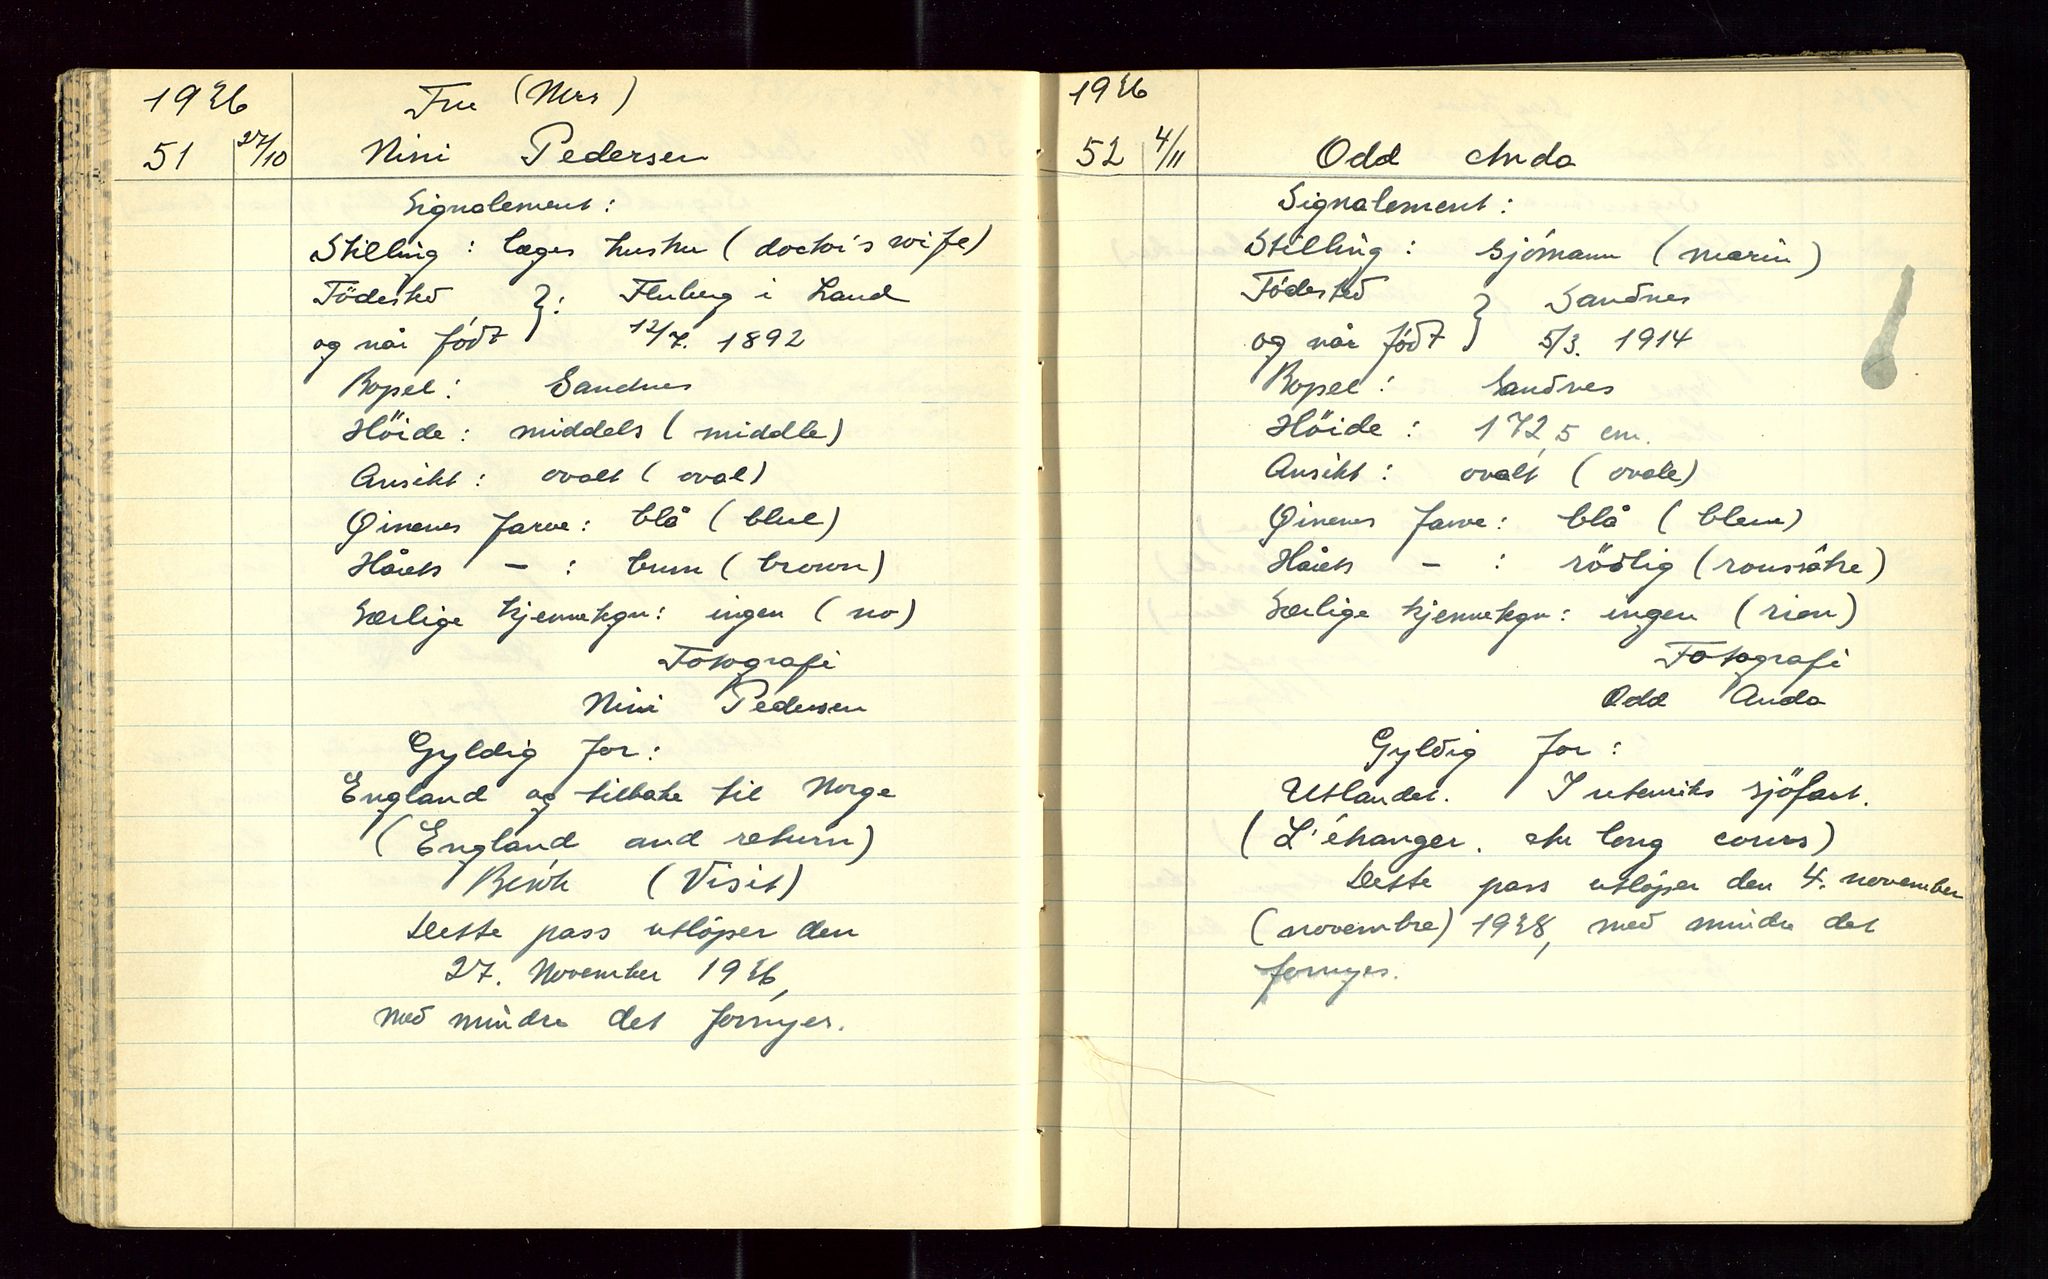 1936
Fru (Mrs)
51 27/10 Nini Pedersen
Signalement:
Stilling: læges hustru (doctor's wife)
Födested }: Fluberg i Land
og når født 12/7. 1892
Bopel: Sandnes
Höide: middels (middle)
Ansikt: ovalt (oval)
Øinenes farve: blå (blue)
Hårets — : brun (brown)
Særlige kjennetegn: ingen (no)
Fotografi
Nini Pedersen
Gyldig for:
England og tilbake til Norge
(England and return)
Besök (Visit)
Dette pass utlöper den
27. November 1936,
med mindre det fornyes.
1936
52 4/11 Odd Anda
Signalement:
Stilling: sjómann (marin)
Födested } Sandnes
og når född 5/3. 1914
Bopel: Sandnes
Höide: 172,5 cm.
Ansikt: ovalt (ovale)
Øinenes farve: blå (bleue)
Hårets — : rödlig (roussâtre)
Særlige kjennetegn: ingen (rien)
Fotografi
Odd Anda
Gyldig for:
Utlandet. I utenriks sjöfart.
(L'étranger. Au long cours)
Dette pass utlöper den 4. november
(novembre) 1938, med mindre det
fornyes.